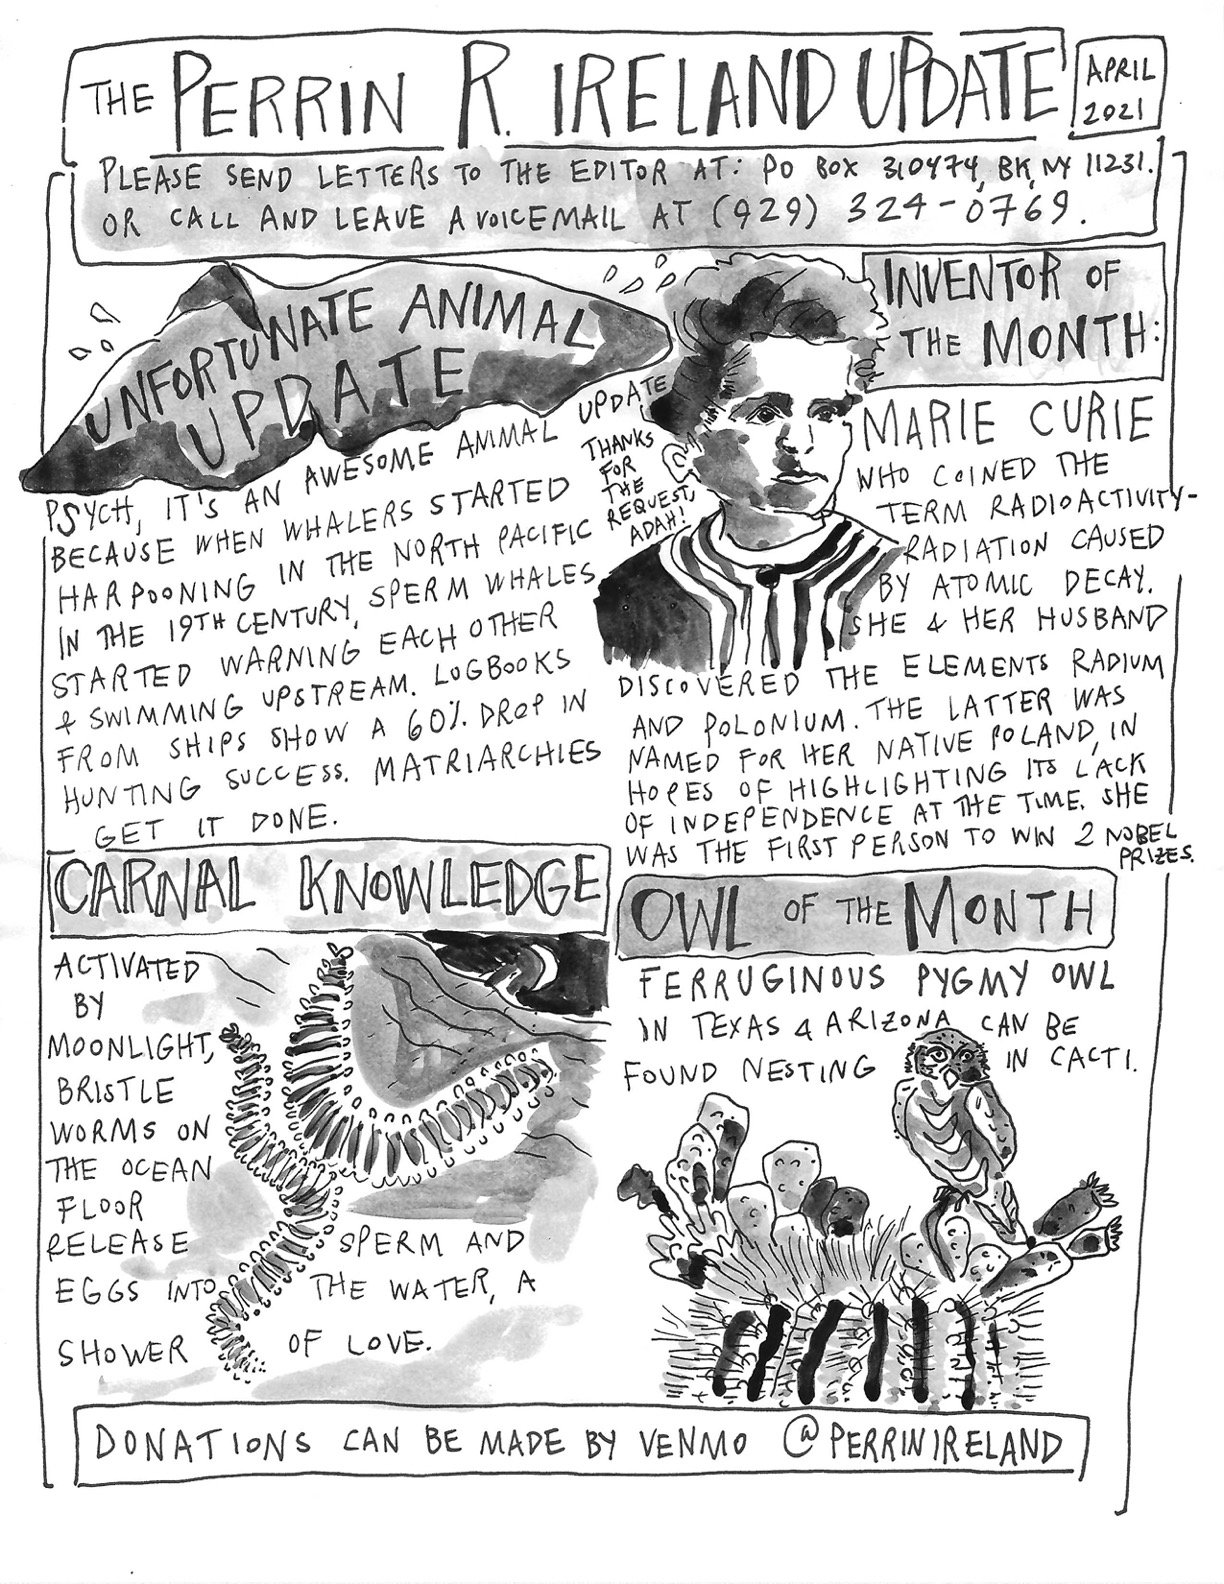 THE PERRIN R. IRELAND UPDATE
APRIL
2021
PLEASE SEND LETTERS TO THE EDITOR AT: PO BOX 310474, BK, NY 11231.
OR CALL AND LEAVE A VOICEMAIL AT (929) 324-0769.
UNFORTUNATE ANIMAL
UPDATE
PSYCH, IT'S AN AWESOME ANIMAL UPDATE
BECAUSE WHEN WHALERS STARTED
HARPOONING IN THE NORTH PACIFIC
IN THE 19TH CENTURY, SPERM WHALES
STARTED WARNING EACH OTHER
& SWIMMING UPSTREAM. LOGBOOKS
FROM SHIPS SHOW A 60% DROP IN
HUNTING SUCCESS. MATRIARCHIES
GET IT DONE.
THANKS
FOR
THE
REQUEST,
ADAH!
INVENTOR OF
THE MONTH:
MARIE CURIE
WHO COINED THE
TERM RADIOACTIVITY-
RADIATION CAUSED
BY ATOMIC DECAY.
SHE & HER HUSBAND
DISCOVERED THE ELEMENTS RADIUM
AND POLONIUM. THE LATTER WAS
NAMED FOR HER NATIVE POLAND, IN
HOPES OF HIGHLIGHTING ITS LACK
OF INDEPENDENCE AT THE TIME. SHE
WAS THE FIRST PERSON TO WIN 2 NOBEL
PRIZES.
CARNAL KNOWLEDGE
ACTIVATED
BY
MOONLIGHT,
BRISTLE
WORMS ON
THE OCEAN
FLOOR
RELEASE SPERM AND
EGGS INTO THE WATER, A
SHOWER OF LOVE.
OWL OF THE MONTH
FERRUGINOUS PYGMY OWL
IN TEXAS & ARIZONA CAN BE
FOUND NESTING IN CACTI.
DONATIONS CAN BE MADE BY VENMO @PERRINIRELAND